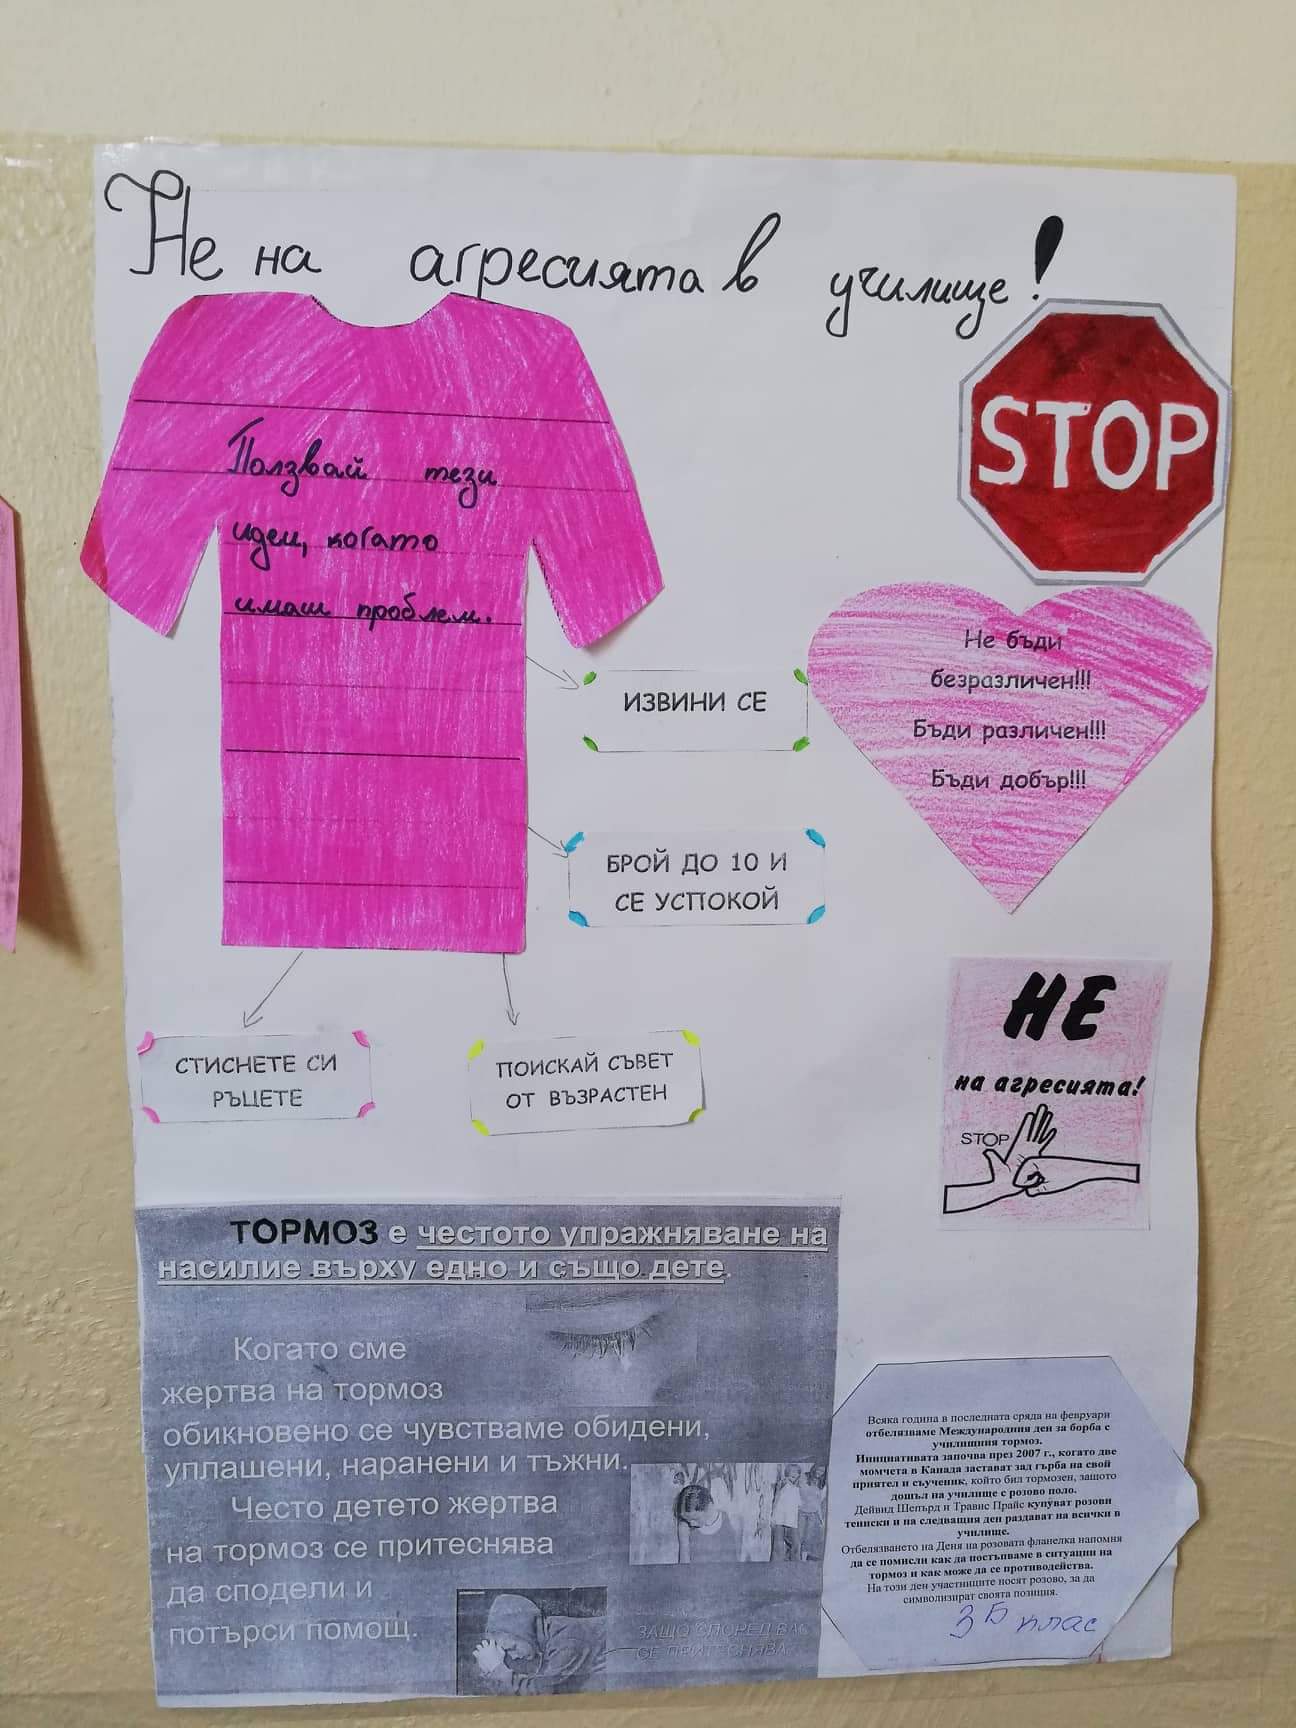 Не на агресията в училище!
STOP
Ползвай тези
идеи, когато
имаш проблем.
Не бъди
безразличен!!!
Бъди различен!!!
Бъди добър!!!
ИЗВИНИ СЕ
БРОЙ ДО 10 И
СЕ УСПОКОЙ
СТИСНЕТЕ СИ
РЪЦЕТЕ
ПОИСКАЙ СЪВЕТ
ОТ ВЪЗРАСТЕН
НЕ
на агресията!
STOP
ТОРМОЗ е честото упражняване на
насилие върху едно и също дете.
Когато сме
жертва на тормоз
обикновено се чувстваме обидени,
уплашени, наранени и тъжни.
Често детето жертва
на тормоз се притеснява
да сподели и
потърси помощ.
ЗАЩО СПОРЕД ВАС
СЕ ПРИТЕСНЯВА
Всяка година в последната сряда на февруари
отбелязваме Международния ден за борба с
училищния тормоз.
Инициативата започва през 2007 г., когато две
момчета в Канада застават зад гърба на свой
приятел и съученик, който бил тормозен, защото
дошъл на училище с розово поло.
Дейвид Шепърд и Травис Прайс купуват розови
тениски и на следващия ден раздават на всички в
училище.
Отбелязването на Деня на розовата фланелка напомня
да се помисли как да постъпваме в ситуации на
тормоз и как може да се противодейства.
На този ден участниците носят розово, за да
символизират своята позиция.
3 Б клас